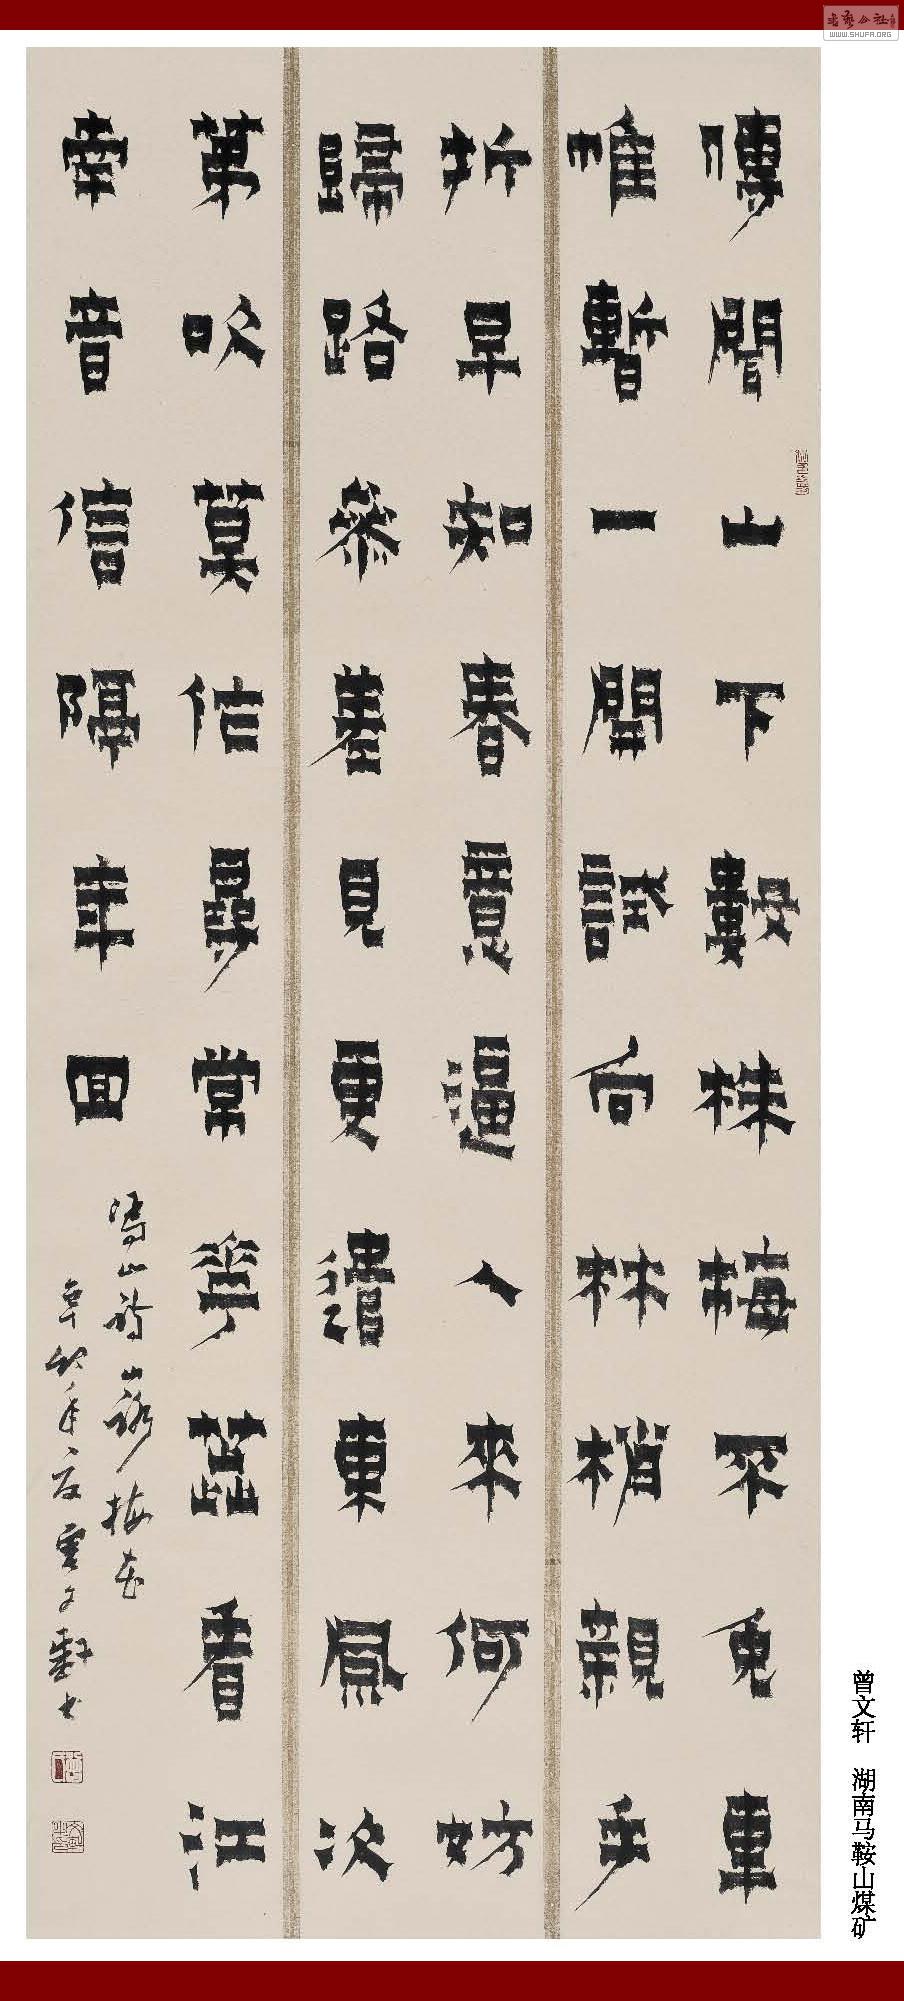 傳聞山下數株梅不免車
帷暫一開試向林梢親手
折早知春意逼人來何妨
歸路參差見更遣東風次
第吹莫作尋常花蕊看江
南音信隔年回
馮山詩山路梅花
辛卯年夏曾文軒书
曾文轩 湖南马鞍山煤矿
WWW.SHUFA.ORG